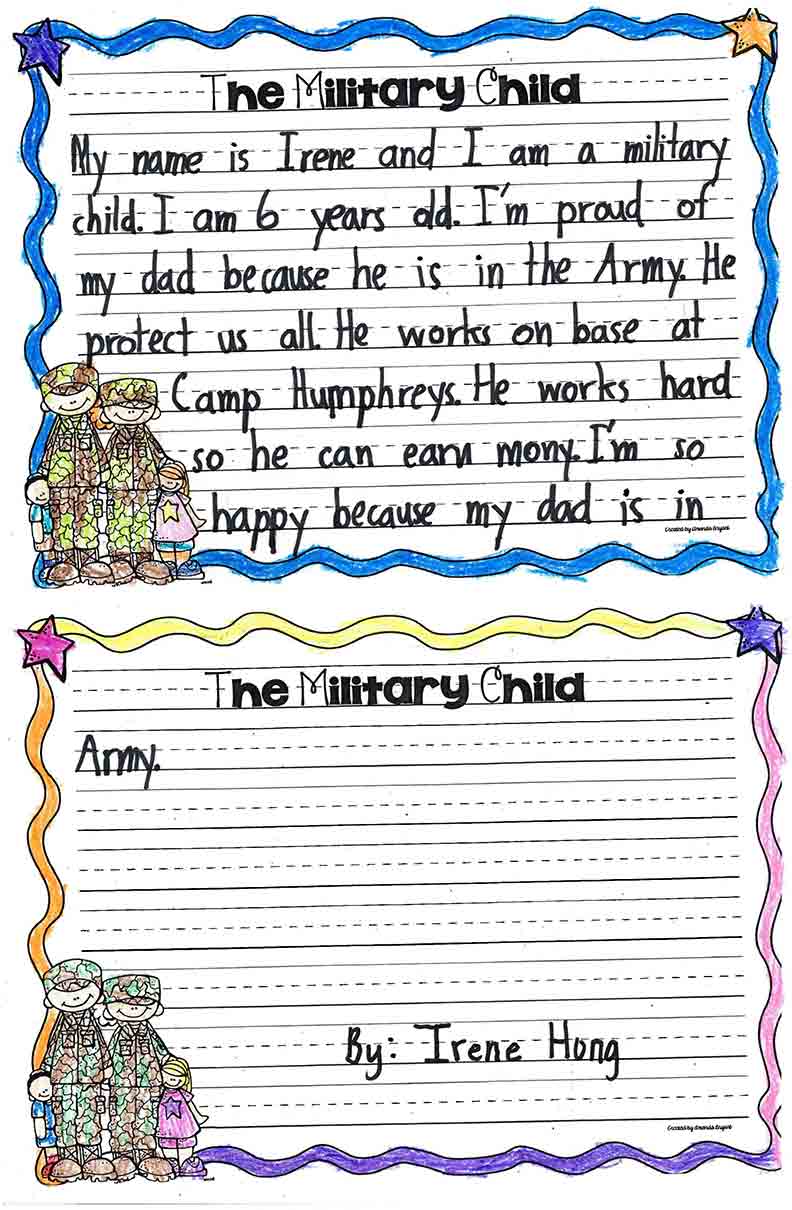 The Military Child
My name is Irene and I am a military
child. I am 6 years old. I'm proud of
my dad because he is in the Army. He
protect us all. He works on base at
Camp Humphreys. He works hard
so he can earn mony. I'm so
happy because my dad is in
Created by Amanda Bryant
The Military Child
Army.
By: Irene Hong
Created by Amanda Bryant